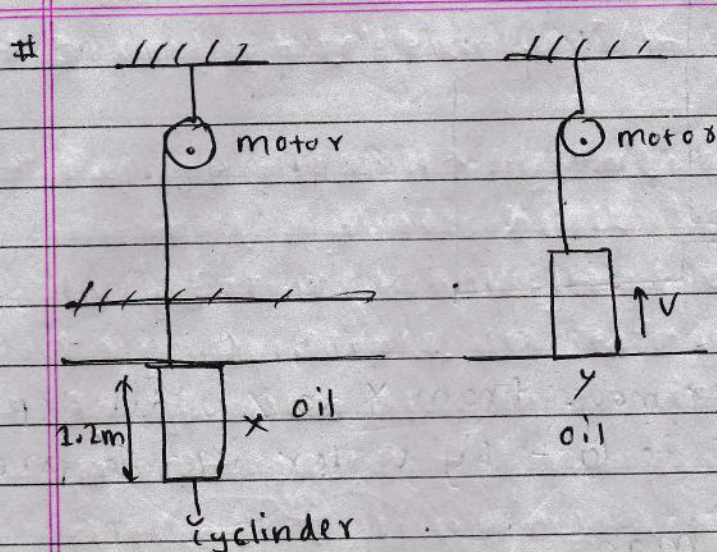 #
motor
motor
V
1.2m
x oil
y
oil
cyclinder